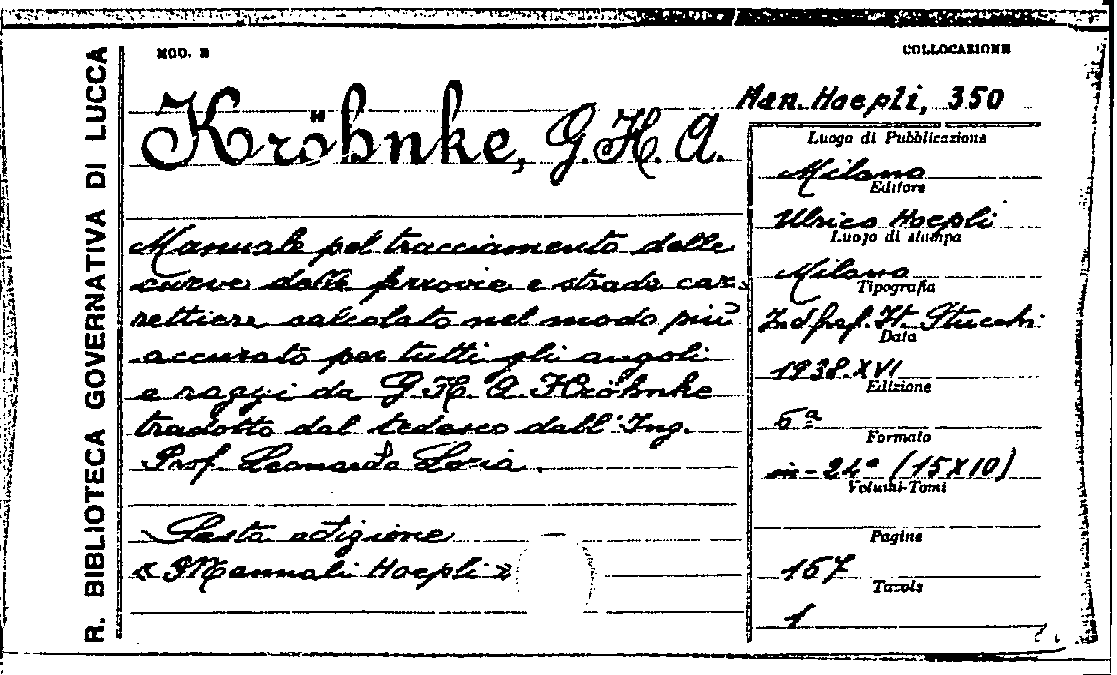 R. BIBLIOTECA GOVERNATIVA DI LUCCA
MOD. B
COLLOCAZIONE
Man. Hoepli, 350
Kröhnke, G. H. A.
Manuale pel tracciamento delle
curve delle ferrovie e strade car-
rettiere calcolato nel modo più
accurato per tutti gli angoli
e raggi da G. H. A. Kröhnke
tradotto dal tedesco dall'Ing.
Prof. Leonardo Loria.
Sesta edizione
« I Manuali Hoepli »
Luogo di Pubblicazione
Milano
Editore
Ulrico Hoepli
Luogo di stampa
Milano
Tipografia
H. Stucchi
Data
1938. XVI
Edizione
6ª
Formato
in-24° (15X10)
Volumi-Tomi
Pagine
167
Tavole
1